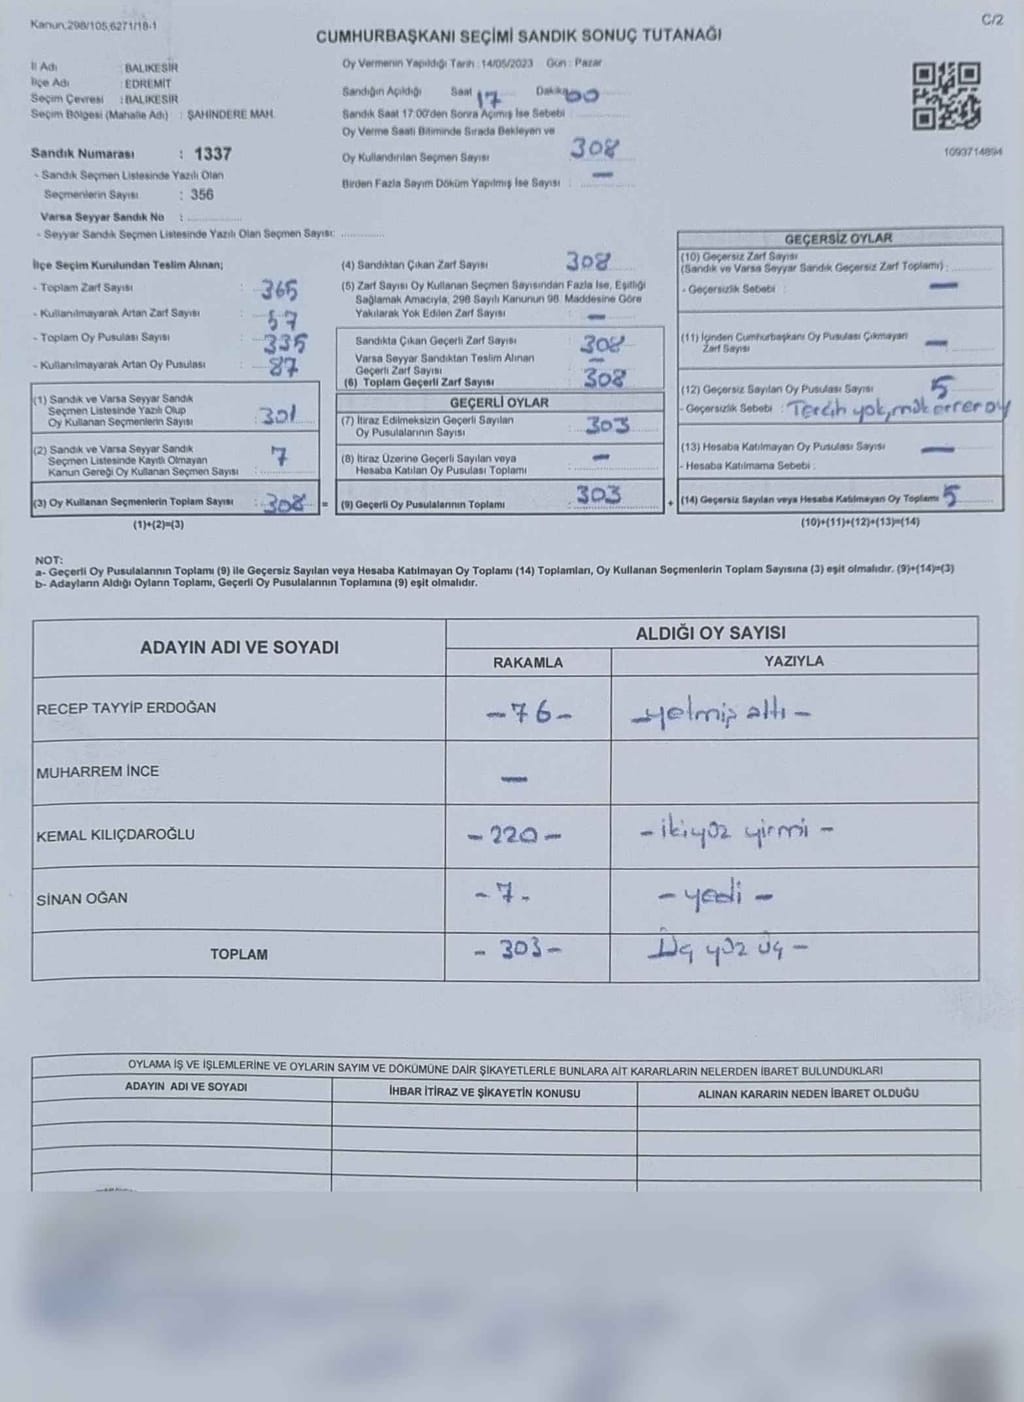 Kanun,298/105,6271/18-1
C/2
CUMHURBAŞKANI SEÇİMİ SANDIK SONUÇ TUTANAĞI
İl Adı : BALIKESİR
İlçe Adı : EDREMİT
Seçim Çevresi : BALIKESİR
Seçim Bölgesi (Mahalle Adı) : ŞAHİNDERE MAH.
Sandık Numarası : 1337
- Sandık Seçmen Listesinde Yazılı Olan
Seçmenlerin Sayısı : 356
Varsa Seyyar Sandık No :
- Seyyar Sandık Seçmen Listesinde Yazılı Olan Seçmen Sayısı:
Oy Vermenin Yapıldığı Tarih : 14/05/2023 Gün : Pazar
Sandığın Açıldığı Saat 17 Dakika 00
Sandık Saat 17:00'den Sonra Açımış İse Sebebi :
Oy Verme Saati Bitiminde Sırada Bekleyen ve
Oy Kullandırılan Seçmen Sayısı 308
Birden Fazla Sayım Döküm Yapılmış İse Sayısı : —
1093714894
İlçe Seçim Kurulundan Teslim Alınan;
- Toplam Zarf Sayısı : 365
- Kullanılmayarak Artan Zarf Sayısı : 57
- Toplam Oy Pusulası Sayısı : 335
- Kullanılmayarak Artan Oy Pusulası : 87
(1) Sandık ve Varsa Seyyar Sandık
Seçmen Listesinde Yazılı Olup
Oy Kullanan Seçmenlerin Sayısı : 301
(2) Sandık ve Varsa Seyyar Sandık
Seçmen Listesinde Kayıtlı Olmayan
Kanun Gereği Oy Kullanan Seçmen Sayısı : 7
(3) Oy Kullanan Seçmenlerin Toplam Sayısı : 308 =
(1)+(2)=(3)
(4) Sandıktan Çıkan Zarf Sayısı 308
(5) Zarf Sayısı Oy Kullanan Seçmen Sayısından Fazla İse, Eşitliği
Sağlamak Amacıyla, 298 Sayılı Kanunun 98. Maddesine Göre
Yakılarak Yok Edilen Zarf Sayısı : —
Sandıkta Çıkan Geçerli Zarf Sayısı : 308
Varsa Seyyar Sandıktan Teslim Alınan
Geçerli Zarf Sayısı : —
(6) Toplam Geçerli Zarf Sayısı : 308
GEÇERLİ OYLAR
(7) İtiraz Edilmeksizin Geçerli Sayılan
Oy Pusulalarının Sayısı : 303
(8) İtiraz Üzerine Geçerli Sayılan veya
Hesaba Katılan Oy Pusulası Toplamı : —
(9) Geçerli Oy Pusulalarının Toplamı : 303 +
GEÇERSİZ OYLAR
(10) Geçersiz Zarf Sayısı
(Sandık ve Varsa Seyyar Sandık Geçersiz Zarf Toplamı) :
- Geçersizlik Sebebi : —
(11) İçinden Cumhurbaşkanı Oy Pusulası Çıkmayan
Zarf Sayısı —
(12) Geçersiz Sayılan Oy Pusulası Sayısı 5
- Geçersizlik Sebebi : Tercih yok,
(13) Hesaba Katılmayan Oy Pusulası Sayısı —
- Hesaba Katılmama Sebebi :
(14) Geçersiz Sayılan veya Hesaba Katılmayan Oy Toplamı 5
(10)+(11)+(12)+(13)=(14)
NOT:
a- Geçerli Oy Pusulalarının Toplamı (9) ile Geçersiz Sayılan veya Hesaba Katılmayan Oy Toplamı (14) Toplamları, Oy Kullanan Seçmenlerin Toplam Sayısına (3) eşit olmalıdır. (9)+(14)=(3)
b- Adayların Aldığı Oyların Toplamı, Geçerli Oy Pusulalarının Toplamına (9) eşit olmalıdır.
ADAYIN ADI VE SOYADI
ALDIĞI OY SAYISI
RAKAMLA YAZIYLA
RECEP TAYYİP ERDOĞAN -76- -yetmiş altı-
MUHARREM İNCE —
KEMAL KILIÇDAROĞLU -220- -ikiyüz yirmi-
SİNAN OĞAN -7- -yedi-
TOPLAM -303- Üç yüz üç-
OYLAMA İŞ VE İŞLEMLERİNE VE OYLARIN SAYIM VE DÖKÜMÜNE DAİR ŞİKAYETLERLE BUNLARA AİT KARARLARIN NELERDEN İBARET BULUNDUKLARI
ADAYIN ADI VE SOYADI İHBAR İTİRAZ VE ŞİKAYETİN KONUSU ALINAN KARARIN NEDEN İBARET OLDUĞU